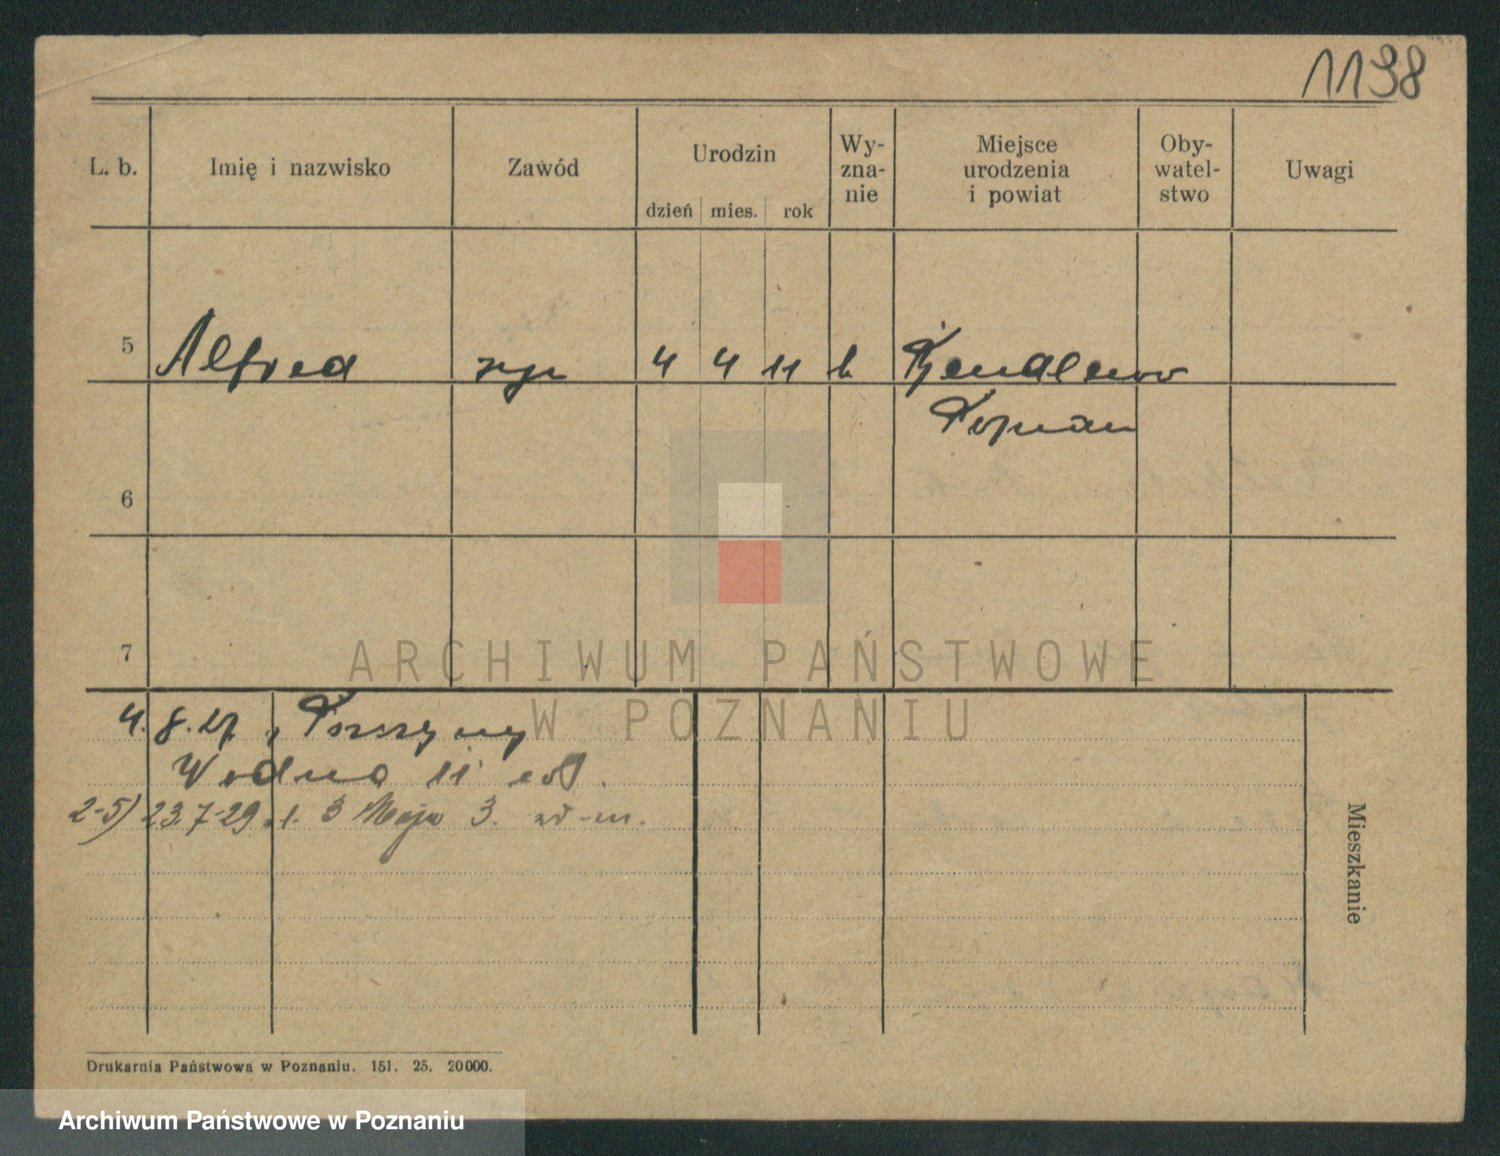 1138
L. b. Imię i nazwisko Zawód Urodzin dzień mies. rok Wy-zna-nie Miejsce urodzenia i powiat Oby-watel-stwo Uwagi
5 Alfred syn 4 4 11 k.
Poznań
6
7
4. 8. 27
Wodna 11
2-5) 23.7.29 3 Maja 3.
Mieszkanie
Drukarnia Państwowa w Poznaniu. 151. 25. 20000.
ARCHIWUM PAŃSTWOWE
W POZNANIU
Archiwum Państwowe w Poznaniu